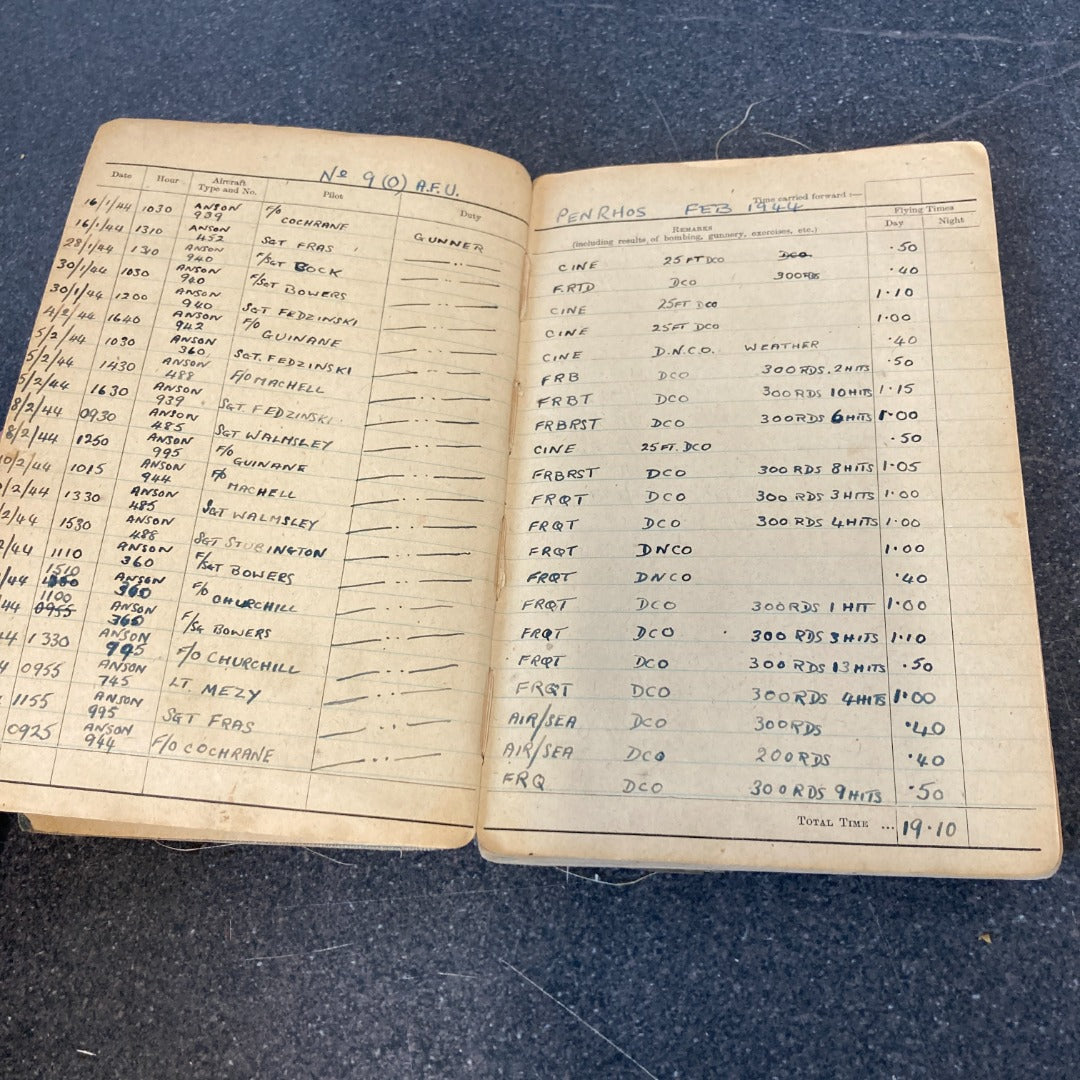 No 9 (O) A.F.U.
Date Hour Aircraft Type and No. Pilot Duty
16/1/44 1030 ANSON 939 F/O COCHRANE GUNNER
16/1/44 1310 ANSON 452 SGT FRAS
28/1/44 1310 ANSON 940 F/SGT BOCK
30/1/44 1030 ANSON 940 F/SGT BOWERS
30/1/44 1200 ANSON 940 SGT FEDZINSKI
4/2/44 1640 ANSON 942 F/O GUINANE
5/2/44 1030 ANSON 360 SGT. FEDZINSKI
5/2/44 1430 ANSON 488 F/O MACHELL
5/2/44 1630 ANSON 939 SGT FEDZINSKI
8/2/44 0930 ANSON 485 SGT WALMSLEY
8/2/44 1250 ANSON 995 F/O GUINANE
10/2/44 1015 ANSON 944 F/O MACHELL
/2/44 1330 ANSON 485 SGT WALMSLEY
/2/44 1530 ANSON 488 SGT STUBINGTON
2/44 1110 ANSON 360 F/SGT BOWERS
/44 1510 ANSON 360 F/O CHURCHILL
44 1100 0955 ANSON 360 F/SG BOWERS
44 1330 ANSON 995 F/O CHURCHILL
4 0955 ANSON 745 LT. MEZY
1155 ANSON 995 SGT FRAS
0925 ANSON 944 F/O COCHRANE
Time carried forward :—
PENRHOS FEB 1944
Remarks Flying Times
(including results of bombing, gunnery, exercises, etc.) Day Night
CINE 25 FT DCO DCO ·50
F.RTD DCO 300RDS ·40
CINE 25FT DCO 1·10
CINE 25FT DCO 1·00
CINE D.N.C.O. WEATHER ·40
FRB DCO 300 RDS. 2HITS ·50
FRBT DCO 300 RDS 10 HITS 1·15
FRBRST DCO 300 RDS 6 HITS 1·00
CINE 25 FT. DCO ·50
FRBRST DCO 300 RDS 8 HITS 1·05
FRQT DCO 300 RDS 3 HITS 1·00
FRQT DCO 300 RDS 4 HITS 1·00
FRQT DNCO 1·00
FRQT DNCO ·40
FRQT DCO 300RDS 1 HIT 1·00
FRQT DCO 300 RDS 3 HITS 1·10
FRQT DCO 300 RDS 13 HITS ·50
FRQT DCO 300 RDS 4 HITS 1·00
AIR/SEA DCO 300RDS ·40
AIR/SEA DCO 200RDS ·40
FRQ DCO 300 RDS 9 HITS ·50
Total Time ... 19·10